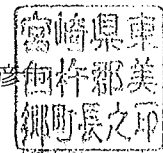 彦
宮崎県東
臼杵郡美
郷町長之印